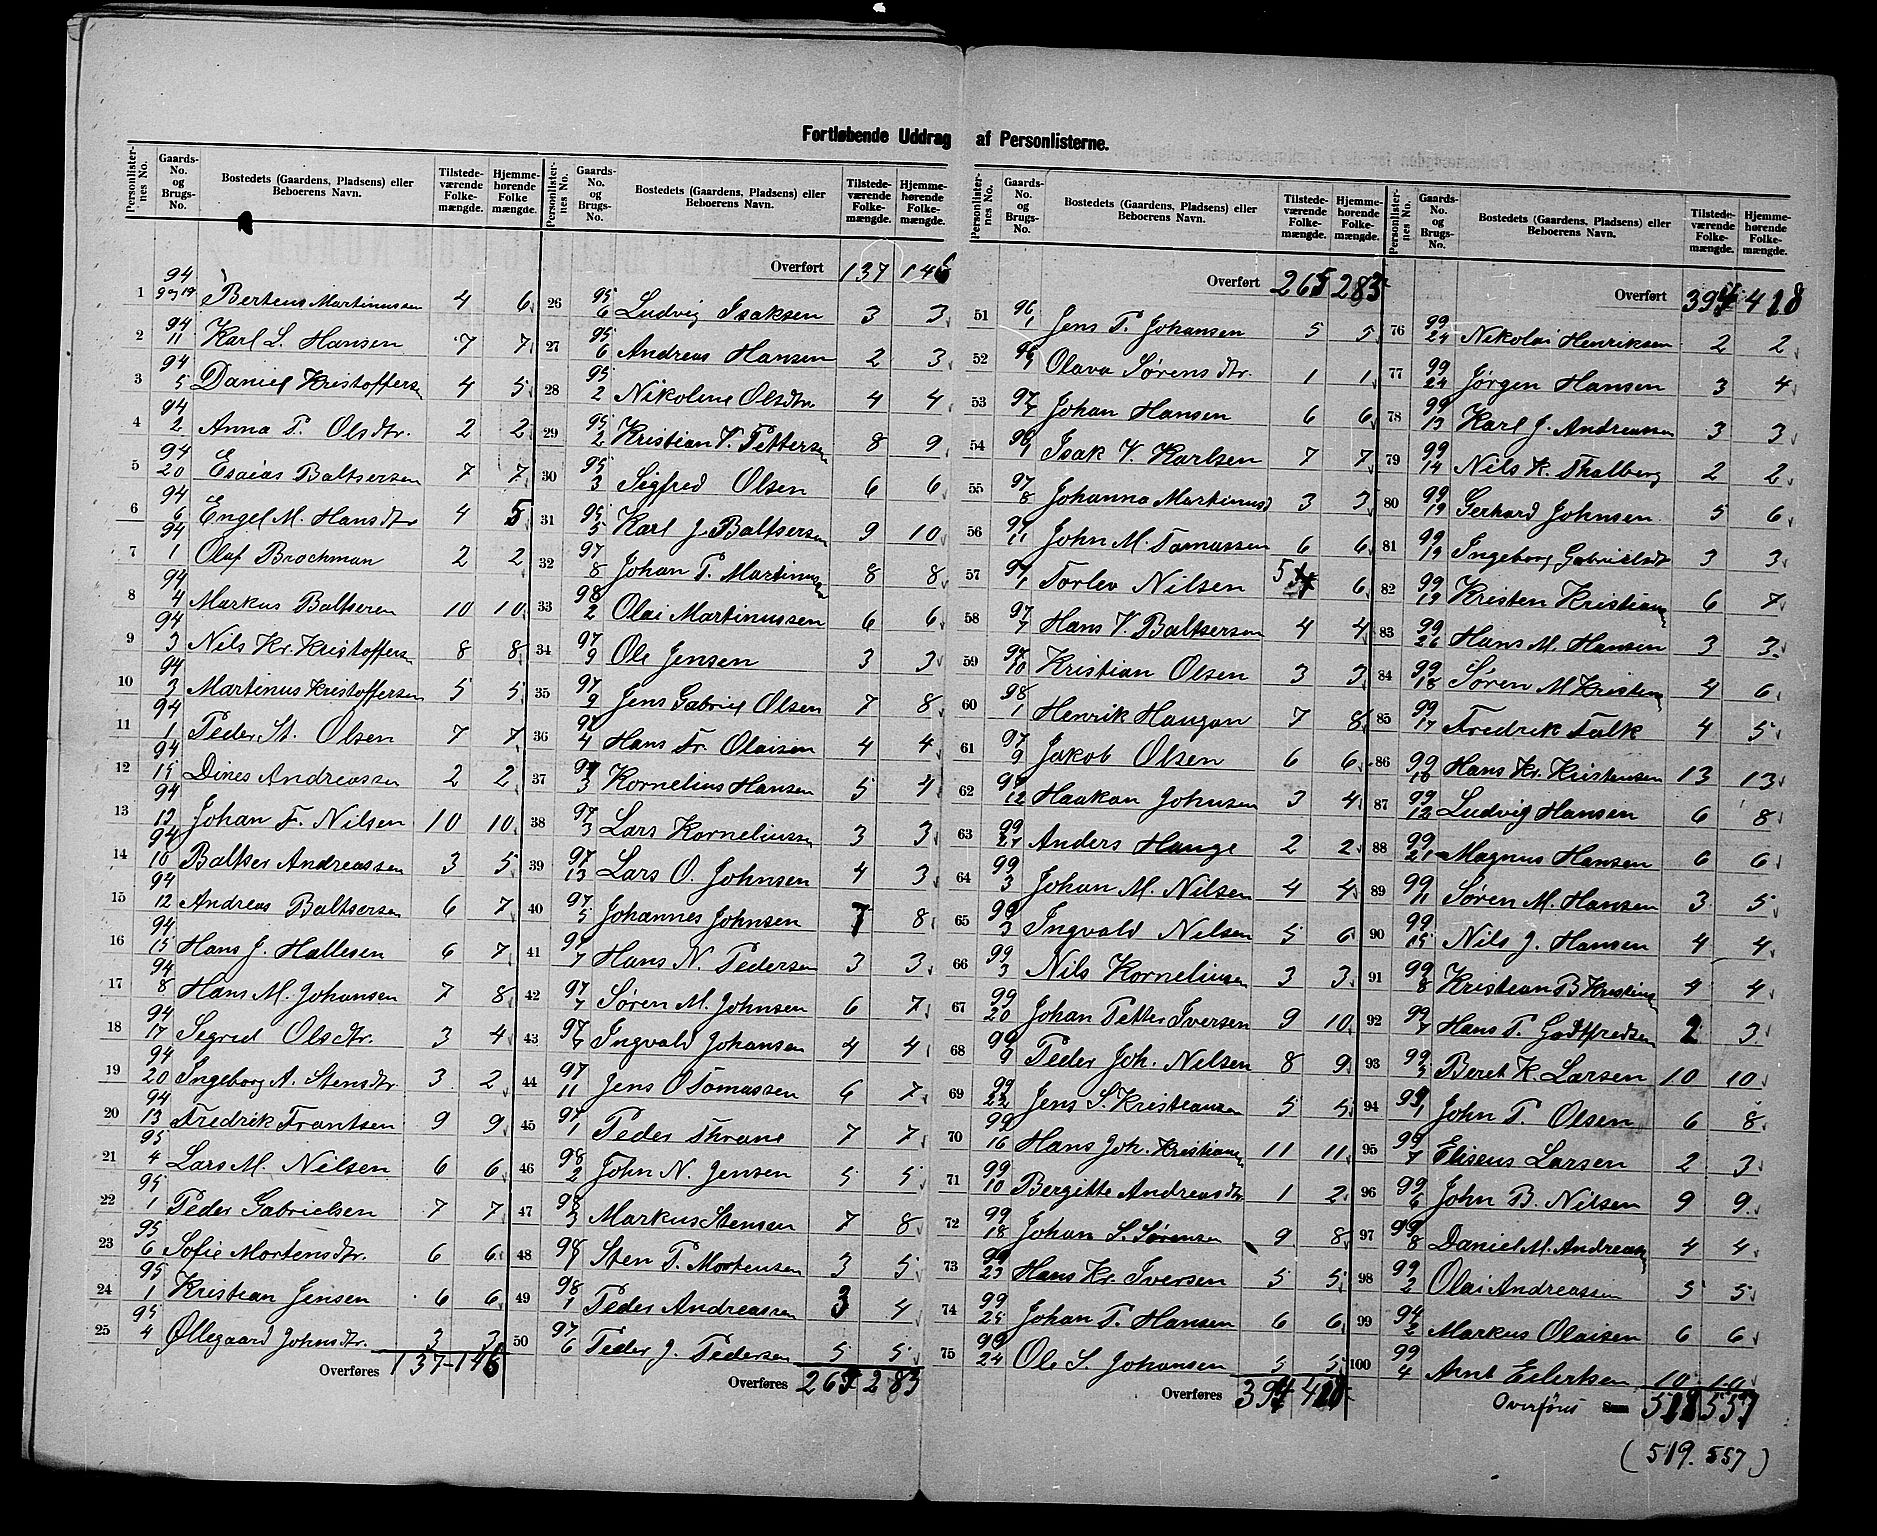 Fortløbende Uddrag af Personlisterne.
Personlisternes No. Gaards-No. og Brugs-No. Bostedets (Gaardens, Pladsens) eller Beboerens Navn. Tilstedeværende Folkemængde. Hjemmehørende Folkemængde.
1 94 9 og 19 Berteus Martinussen 4 6
2 94 11 Karl L. Hansen 7 7
3 94 5 Daniel Kristoffersn 4 5
4 94 2 Anna P. Olsdtr. 2 2
5 94 20 Esaias Baltsersen 7 7
6 94 6 Engel M. Hansdtr 4 5
7 94 1 Olaf Brochman 2 2
8 94 4 Markus Baltseren 10 10
9 94 3 Nils Kr. Kristoffersn 8 8
10 94 3 Martinus Kristoffersen 5 5
11 94 1 Peder St. Olsen 7 7
12 94 15 Dines Andreassen 2 2
13 94 13 Johan F. Nilsen 10 10
14 94 10 Baltser Andreassen 3 5
15 94 12 Andreas Baltsersen 6 7
16 94 15 Hans J. Hallesen 6 7
17 94 8 Hans M. Johansen 7 8
18 94 17 Segred Olsdtr. 3 4
19 94 20 Ingeborg A. Stensdtr 3 2
20 94 13 Fredrik Frantsen 9 9
21 95 4 Lars M. Nilsen 6 6
22 95 1 Peder Gabrielsen 7 7
23 95 6 Sofie Mortensdtr. 6 6
24 95 1 Kristian Jensen 6 6
25 95 4 Øllegaard Johnsdtr. 3 3
Overføres 137 146
Personlisternes No. Gaards-No. og Brugs-No. Bostedets (Gaardens, Pladsens) eller Beboerens Navn. Tilstedeværende Folkemængde. Hjemmehørende Folkemængde.
Overført 137 146
26 95 6 Ludvig Isaksen 3 3
27 95 6 Andreas Hansen 2 3
28 95 2 Nikoline Olsdtr 4 4
29 95 2 Kristian V. Pettersen 8 9
30 95 3 Sigfred Olsen 6 6
31 95 5 Karl J. Baltsersen 9 10
32 97 8 Johan P. Martinusen 8 8
33 98 2 Olai Martinussen 6 6
34 97 9 Ole Jensen 3 3
35 97 9 Jens Gabriel Olsen 7 8
36 97 4 Hans Fr. Olaisen 4 4
37 97 3 Kornelius Hansen 5 4
38 97 3 Lars Korneliussen 3 3
39 97 13 Lars O. Johnsen 4 3
40 97 5 Johannes Johnsen 7 8
41 97 7 Hans N. Pedersen 3 3
42 97 7 Søren M. Johnsen 6 7
43 97 7 Ingvald Johansen 4 4
44 97 11 Jens O Tomassen 6 7
45 97 1 Peder Thrane 7 7
46 98 2 John N. Jensen 5 5
47 98 3 Markus Stensen 7 8
48 98 1 Sten P. Mortensen 3 5
49 98 1 Peder Andreassen 3 4
50 97 6 Peder J. Pedersen 5 5
Overføres 265 283
Personlisternes No. Gaards-No. og Brugs-No. Bostedets (Gaardens, Pladsens) eller Beboerens Navn. Tilstedeværende Folkemængde. Hjemmehørende Folkemængde.
Overført 265 283
51 96 1 Jens P. Johansen 5 5
52 96 Olava Sørensdtr. 1 1
53 97 7 Johan Hansen 6 6
54 96 1 Isak V. Karlsen 7 7
55 97 8 Johanna Martinusd 3 3
56 97 11 John M. Tomassen 6 6
57 97 1 Torlev Nilsen 5 6
58 97 7 Hans V. Baltsersen 4 4
59 97 10 Kristian Olsen 3 3
60 98 1 Henrik Haugan 7 8
61 97 9 Jakob Olsen 6 6
62 97 12 Haakon Johnsen 3 4
63 99 27 Anders Hauge 2 2
64 99 3 Johan M. Nilsen 4 4
65 99 3 Ingvald Nilsen 5 6
66 99 3 Nils Korneliusen 3 3
67 99 20 Johan Petter Iversen 9 10
68 99 9 Peder Joh. Nilsen 8 9
69 99 22 Jens S. Kristiansen 5 5
70 99 16 Hans Joh. Kristiansen 11 11
71 99 10 Bergitte Andreasdtr 1 2
72 99 18 Johan S. Sørensen 9 8
73 99 23 Hans Kr. Iversen 5 5
74 99 25 Johan P. Hansen 6 6
75 99 24 Ole S. Johansen 5 5
Overføres 394 418
Personlisternes No. Gaards-No. og Brugs-No. Bostedets (Gaardens, Pladsens) eller Beboerens Navn. Tilstedeværende Folkemængde. Hjemmehørende Folkemængde.
Overført 394 418
76 99 24 Nikolai Henriksen 2 2
77 99 24 Jørgen Hansen 3 4
78 99 13 Karl J. Andreassen 3 3
79 99 14 Nils K. Thalberg 2 2
80 99 19 Gerhard Johnsen 5 6
81 99 19 Ingeborg Gabrielsdt 3 3
82 99 19 Kristen Kristiansn 6 7
83 99 26 Hans M. Hansen 3 3
84 99 18 Søren M Kristiansn 4 6
85 99 17 Fredrik Falk 4 5
86 99 18 Hans Kr. Kristensen 13 13
87 99 12 Ludvig Hansen 6 8
88 99 21 Magnus Hansen 6 6
89 99 11 Søren M. Hansen 3 5
90 99 15 Nils J. Hansen 4 4
91 99 8 Kristian B Kristians 4 4
92 99 7 Hans P. Godtfredsen 2 3
93 99 3 Beret K. Larsen 10 10
94 99 1 John P. Olsen 6 8
95 99 7 Eliseus Larsen 2 3
96 99 6 John B. Nilsen 9 9
97 99 8 Daniel M. Andreasn 4 4
98 99 2 Olai Andreassen 5 5
99 94 2 Markus Olaisen 6 6
100 99 4 Arnt Eilertsen 10 10
Overføres Sum 518 557
(519. 557)